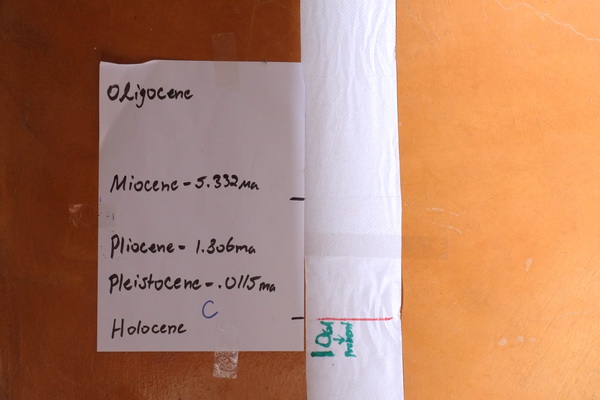 Oligocene
Miocene - 5.332ma
Pliocene - 1.806ma
Pleistocene - .0115ma
C
Holocene
present